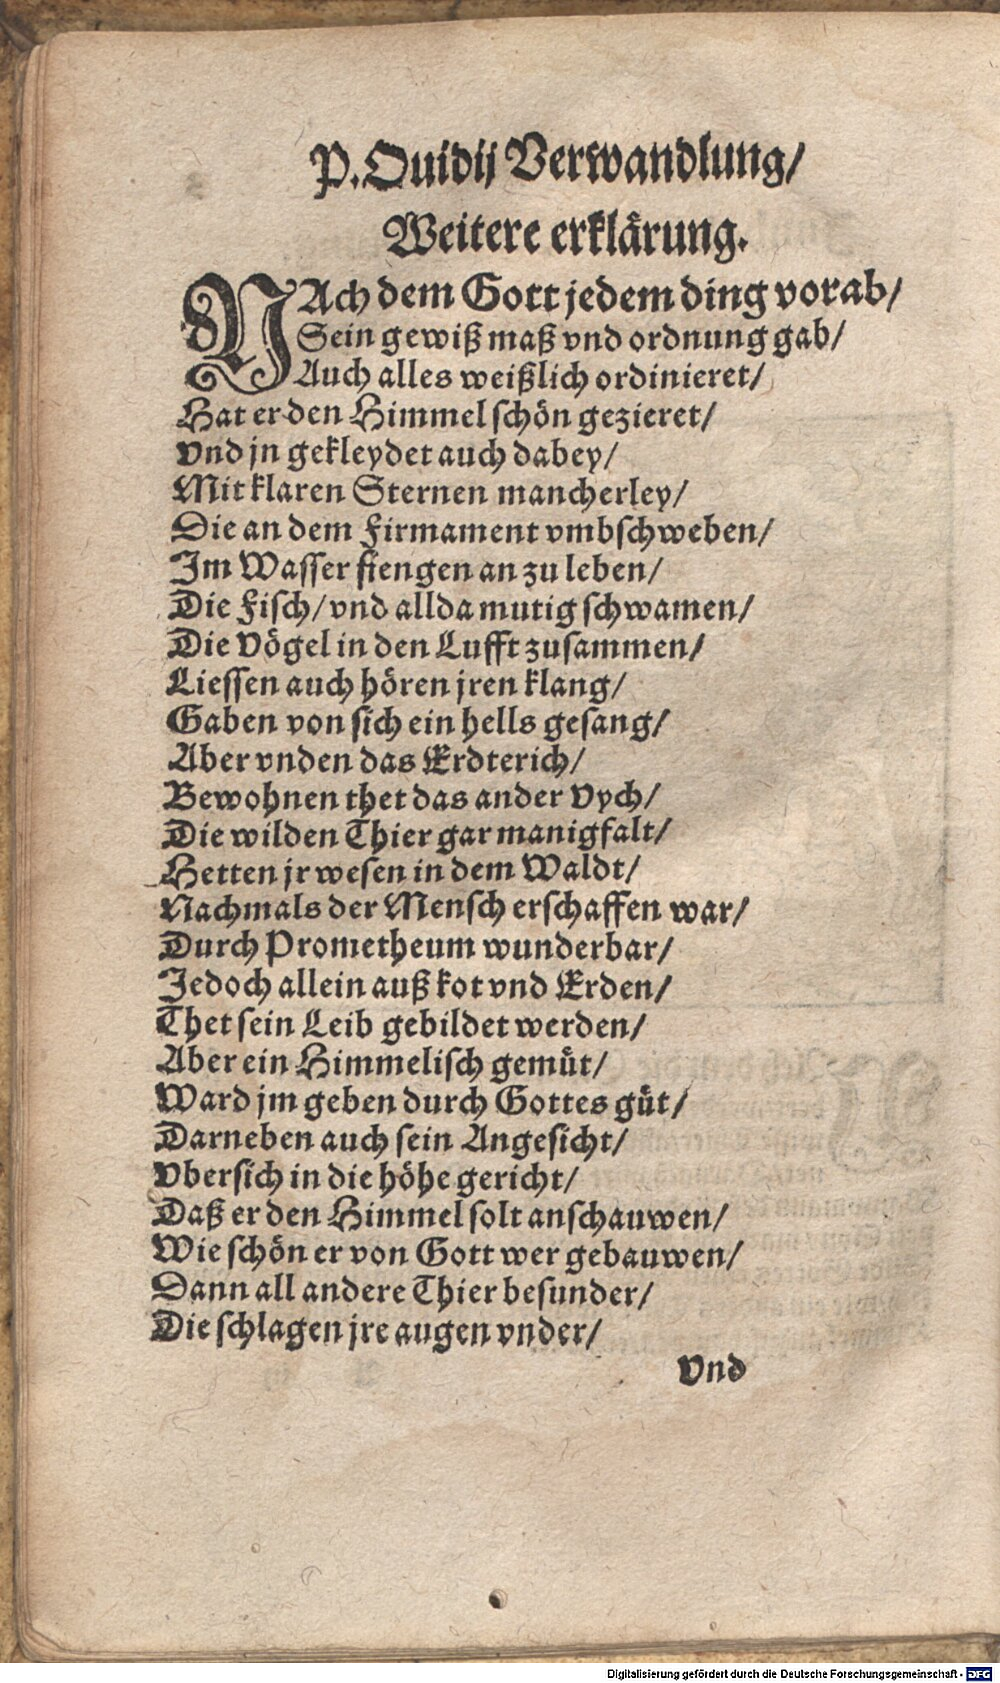 P. Ouidij Verwandlung/
Weitere erklärung.
NAch dem Gott jedem ding vorab/
Sein gewiß maß vnd ordnung gab/
Auch alles weißlich ordinieret/
Hat er den Himmel schön gezieret/
Vnd jn gekleydet auch dabey/
Mit klaren Sternen mancherley/
Die an dem Firmament vmbschweben/
Im Wasser fiengen an zu leben/
Die Fisch/ vnd allda mutig schwamen/
Die Vögel in den Lufft zusammen/
Liessen auch hören jren klang/
Gaben von sich ein hells gesang/
Aber vnden das Erdterich/
Bewohnen thet das ander Vych/
Die wilden Thier gar manigfalt/
Hetten jr wesen in dem Waldt/
Nachmals der Mensch erschaffen war/
Durch Prometheum wunderbar/
Jedoch allein auß kot vnd Erden/
Thet sein Leib gebildet werden/
Aber ein Himmelisch gemüt/
Ward jm geben durch Gottes güt/
Darneben auch sein Angesicht/
Vbersich in die höhe gericht/
Daß er den Himmel solt anschauwen/
Wie schön er von Gott wer gebauwen/
Dann all andere Thier besunder/
Die schlagen jre augen vnder/
Vnd
Digitalisierung gefördert durch die Deutsche Forschungsgemeinschaft - DFG